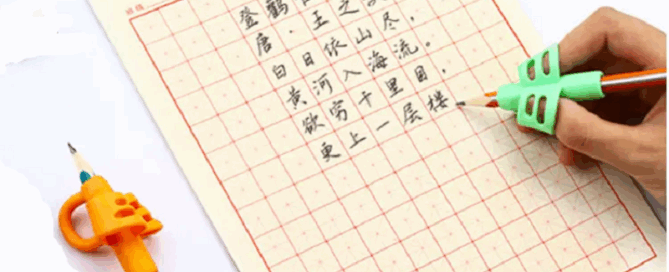 登鹳
唐·王之
白日依山尽,
黄河入海流。
欲穷千里目,
更上一层楼